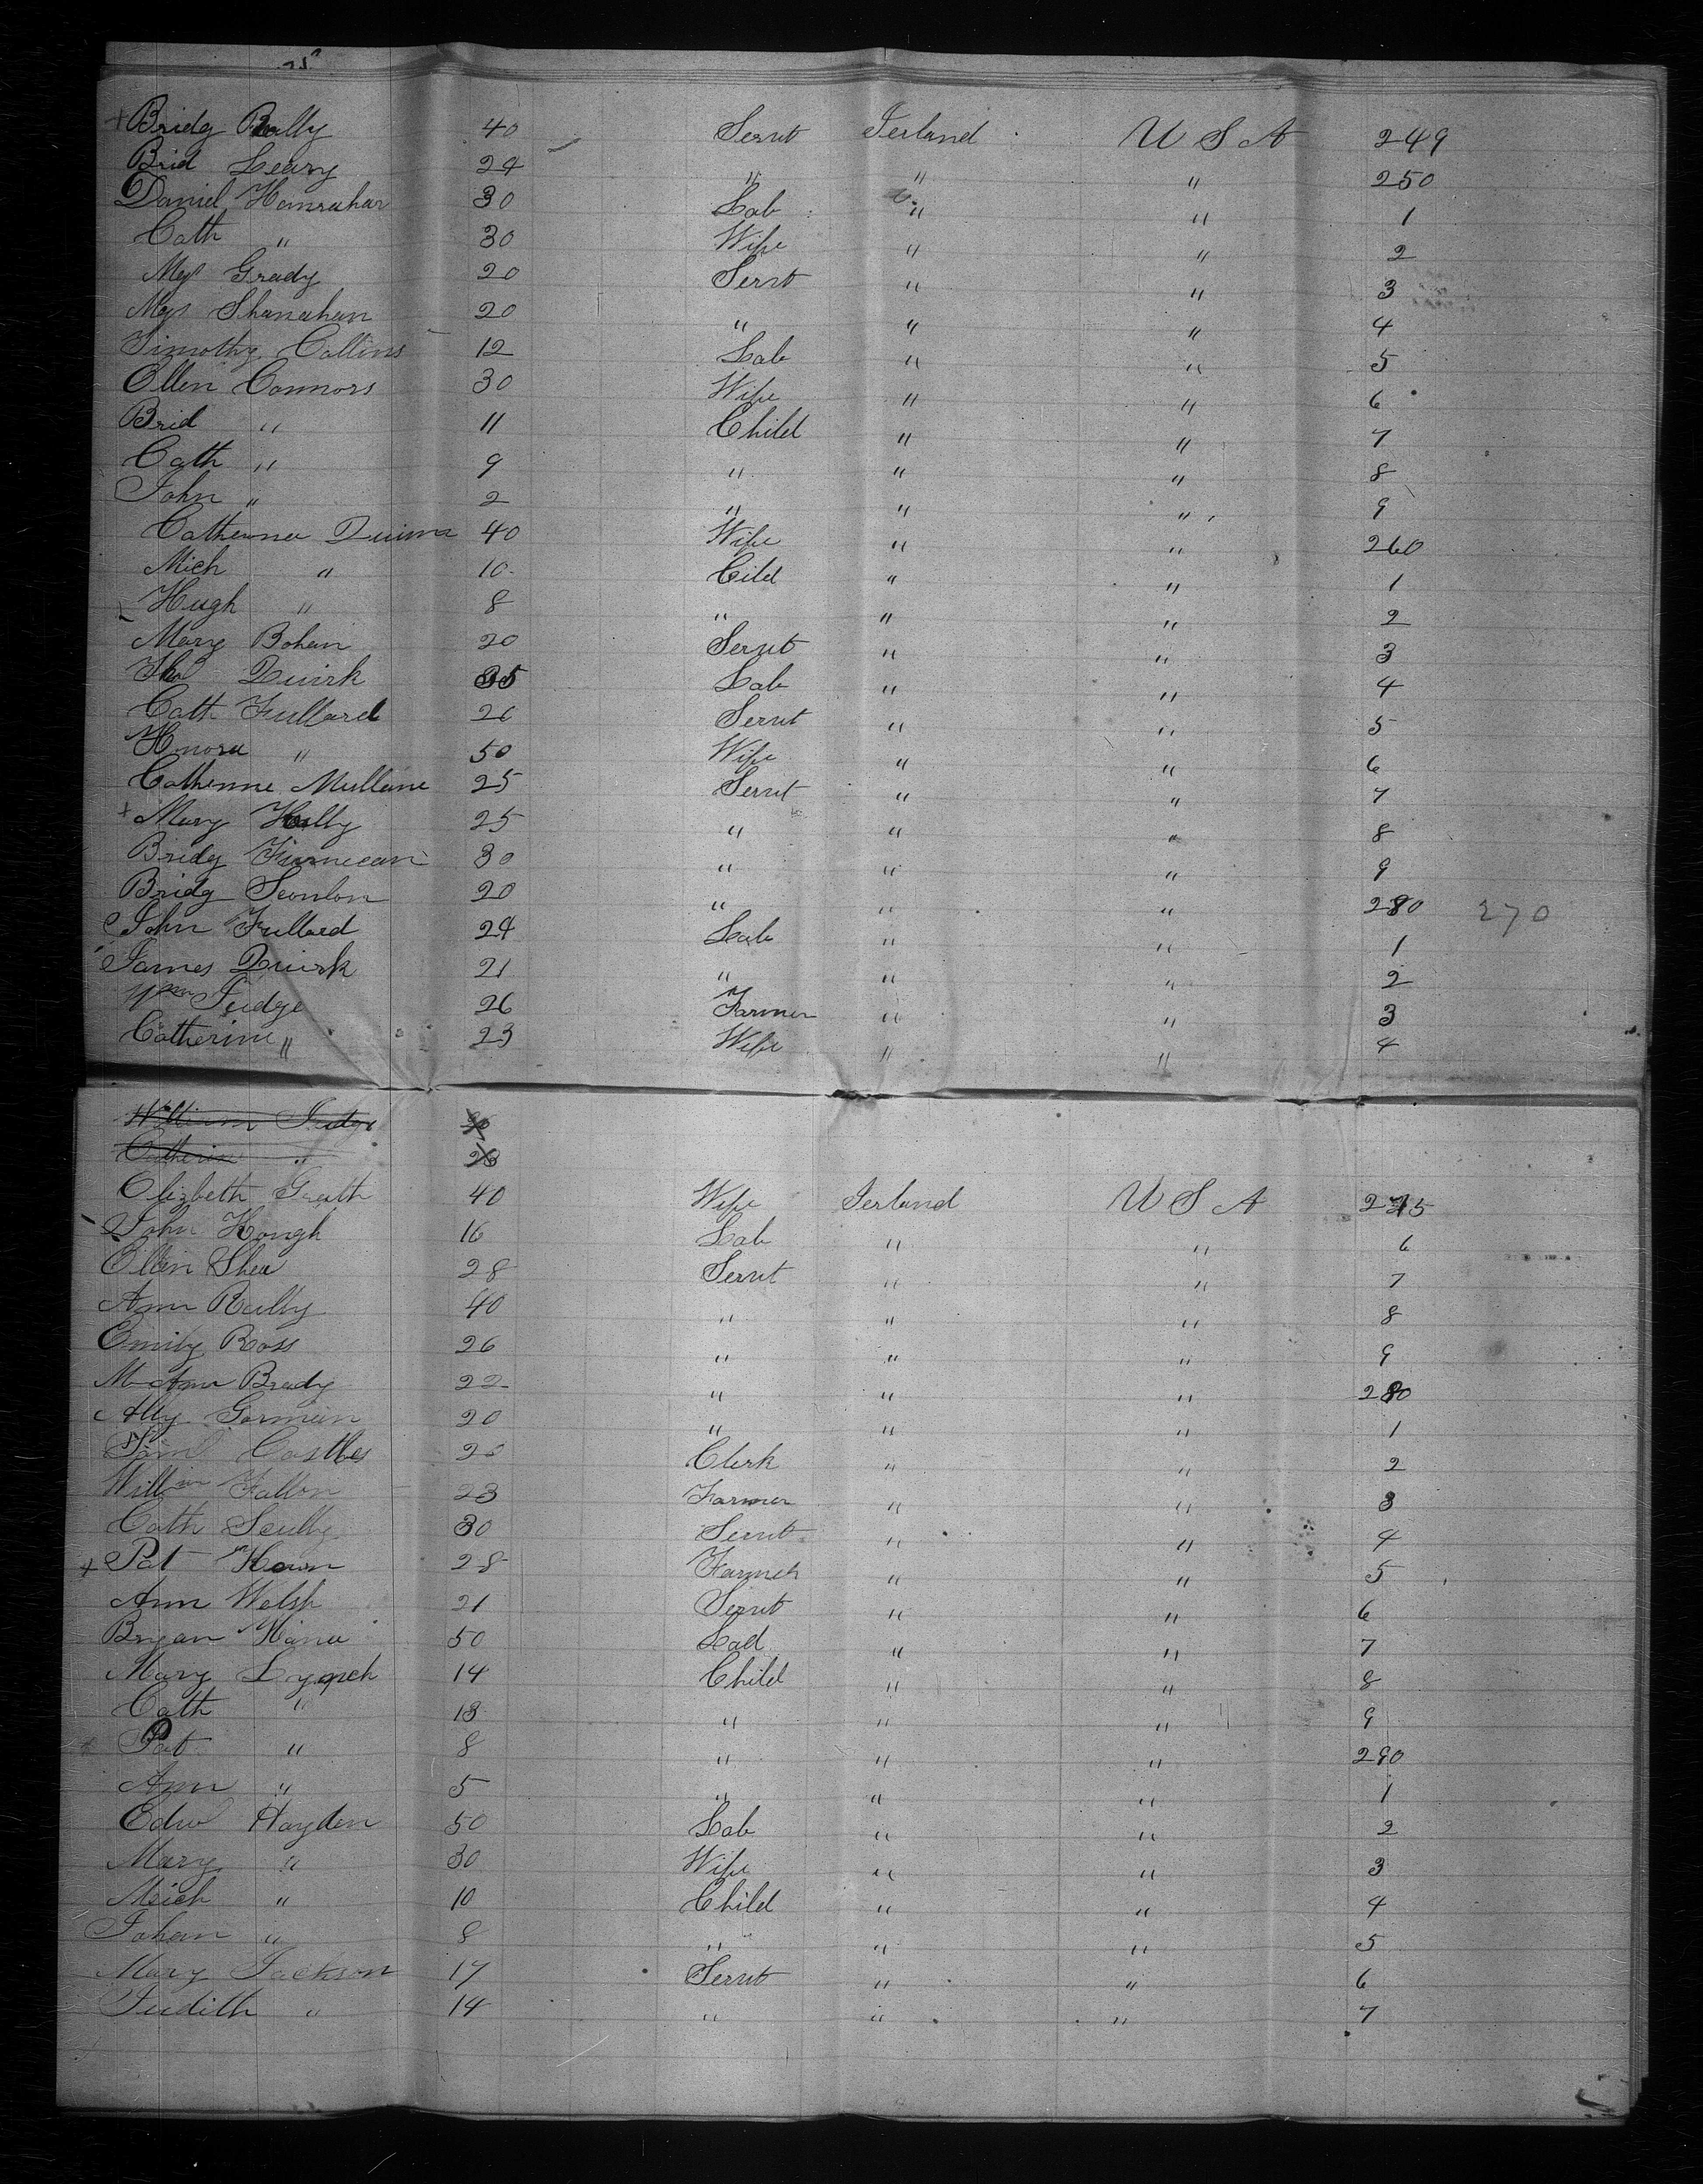 Bridg Rally 40 Servt Ierland U S A 249
Brid Leary 24 " " " 250
Daniel Hanrahan 30 Lab " " 1
Cath " 30 Wife " " 2
Mgt Grady 20 Servt " " 3
Mgt Shanahan 20 " " " 4
Timothy Collins 12 Lab " " 5
Ellen Connors 30 Wife " " 6
Brid " 11 Child " " 7
Cath " 9 " " " 8
John " 2 " " " 9
Catherine 40 Wife " " 260
Mich " 10 Cild " " 1
Hugh " 8 " " " 2
Mary Bohan 20 Servt " " 3
Quirk 35 Lab " " 4
Cath Fullard 26 Servt " " 5
Honora " 50 Wife " " 6
Catherine Mullane 25 Servt " " 7
+ Mary Kelly 25 " " " 8
Bridg Finnecan 30 " " " 9
Bridg Scanlon 20 " " " 280 270
John Fullard 24 Lab " " 1
James Quirk 21 " " " 2
Wm Judge 26 Farmer " " 3
Catherine " 23 Wife " " 4
William Judge 26
Catherine " 23
Elizbeth 40 Wife Ierland U S A 275
John Hough 16 Lab " " 6
Ellen Shea 28 Servt " " 7
Ann Reilly 40 " " " 8
Emily Ross 26 " " " 9
M Ann Brady 22 " " " 280
Ally Gorman 20 " " " 1
Saml Castles 20 Clerk " " 2
Willam Fallon 23 Farmer " " 3
Cath Scully 30 Servt " " 4
+ Pat 28 Farmer " " 5
Ann Welsh 21 Servt " " 6
Bryan 50 Lad " " 7
Mary Lynch 14 Child " " 8
Cath " 13 " " " 9
Pat " 8 " " " 290
Ann " 5 " " " 1
Edw Hayden 50 Lab " " 2
Mary " 30 Wife " " 3
Mich " 10 Child " " 4
Johan " 8 " " " 5
Mary Jackson 17 Servt " " 6
Judith " 14 " " " 7